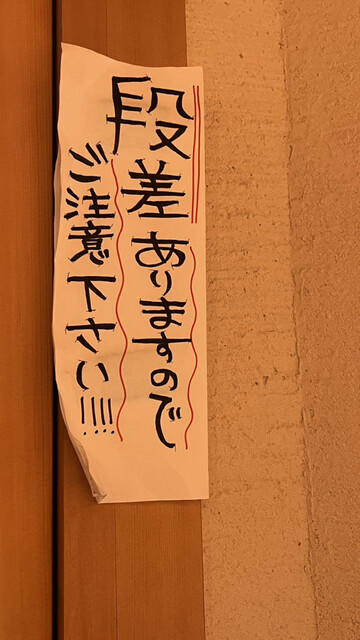 段差ありますので
ご注意下さい!!!!